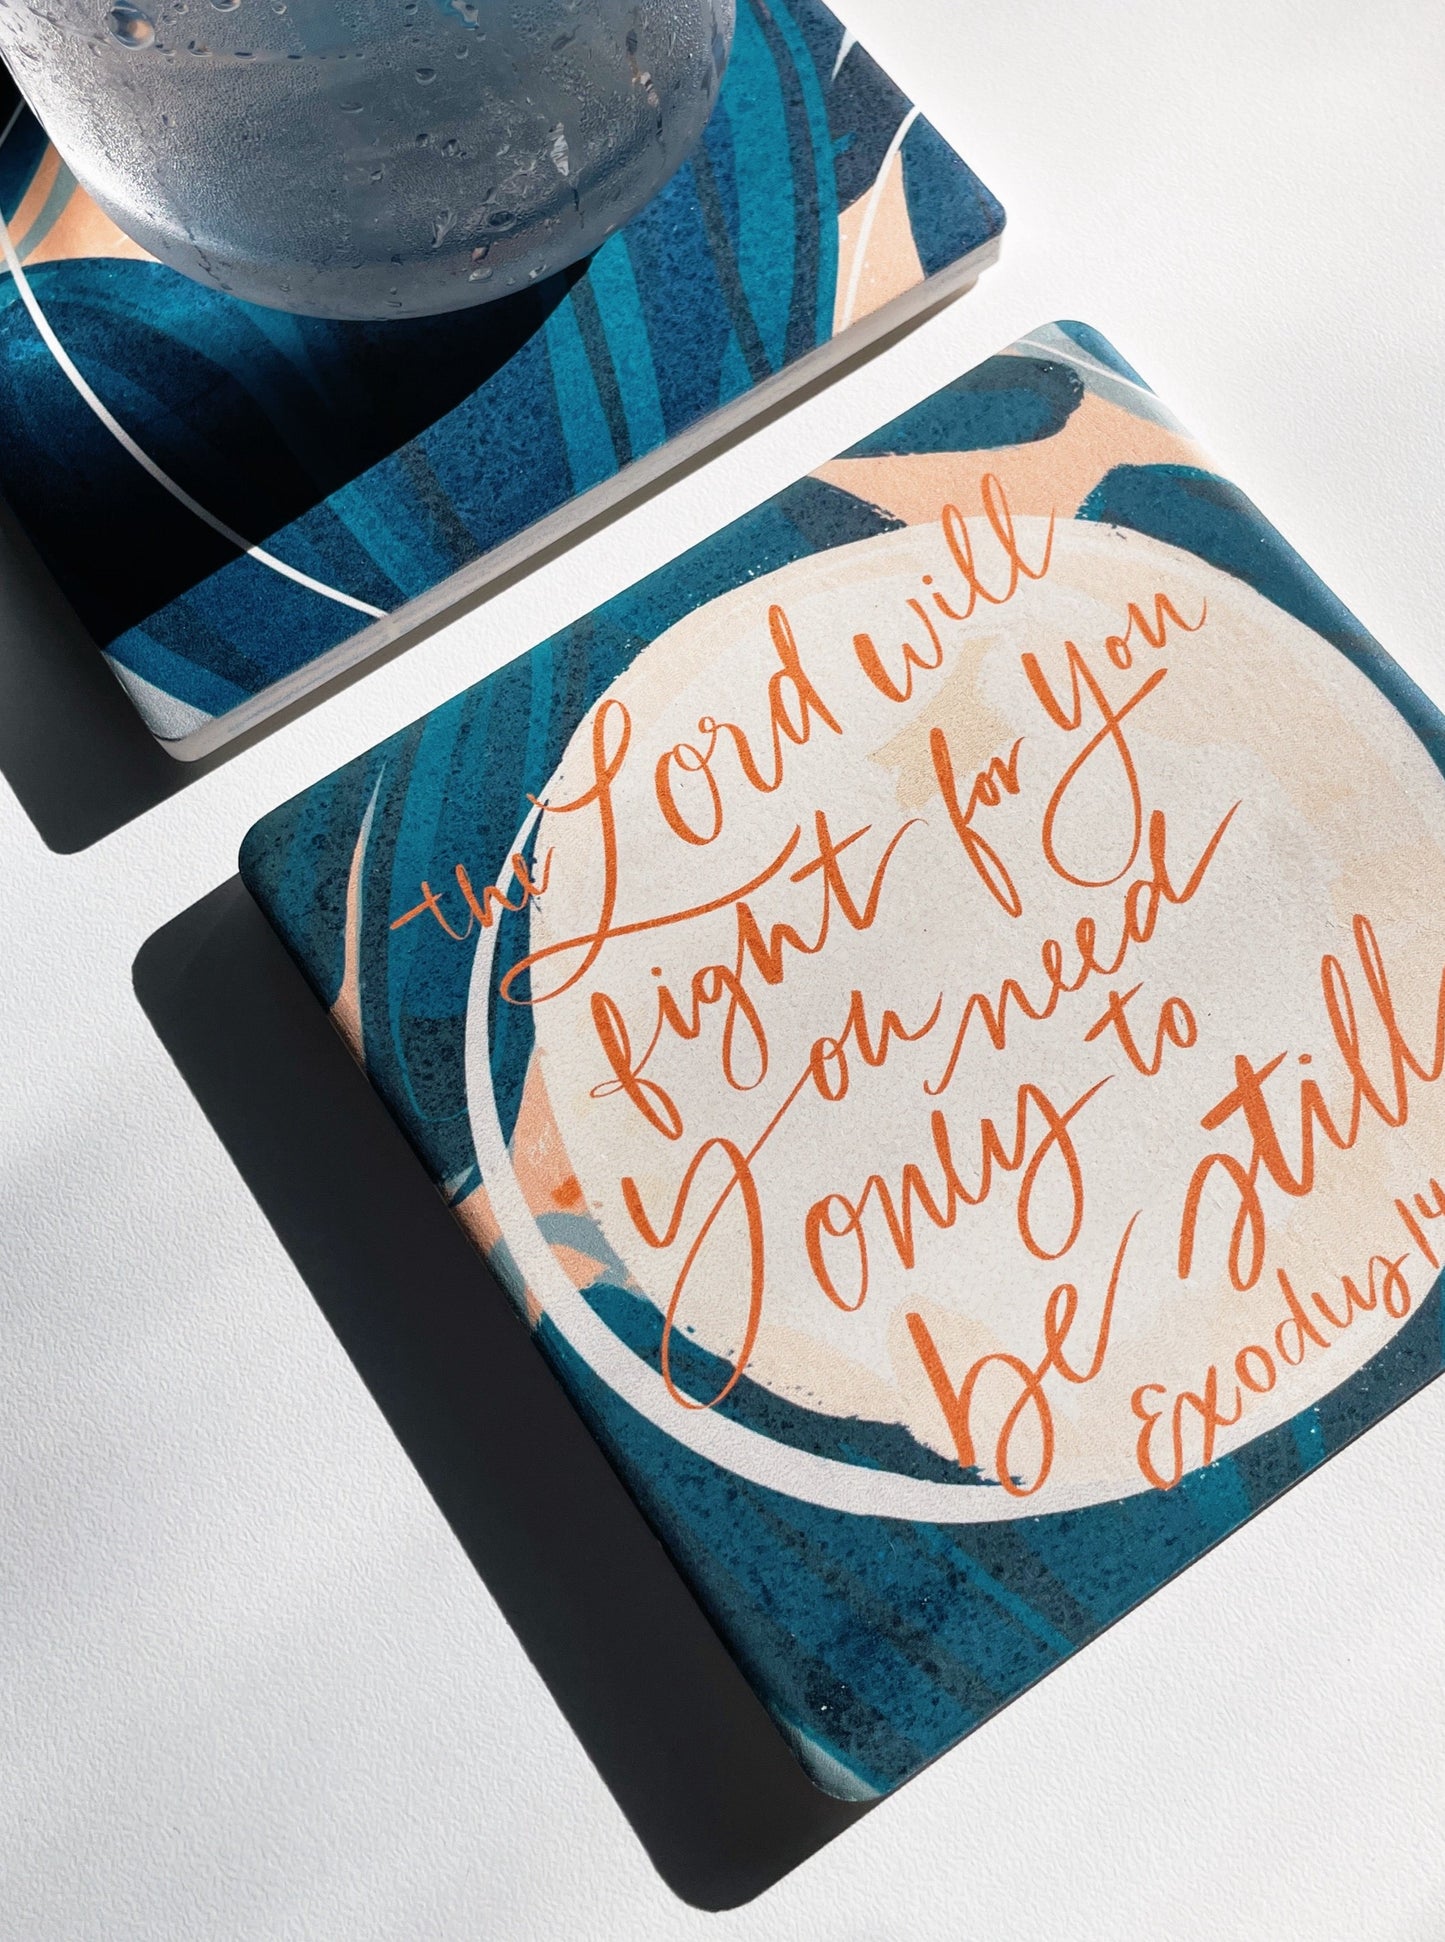 the Lord will
fight for you
you need
only to
be still
Exodus 14